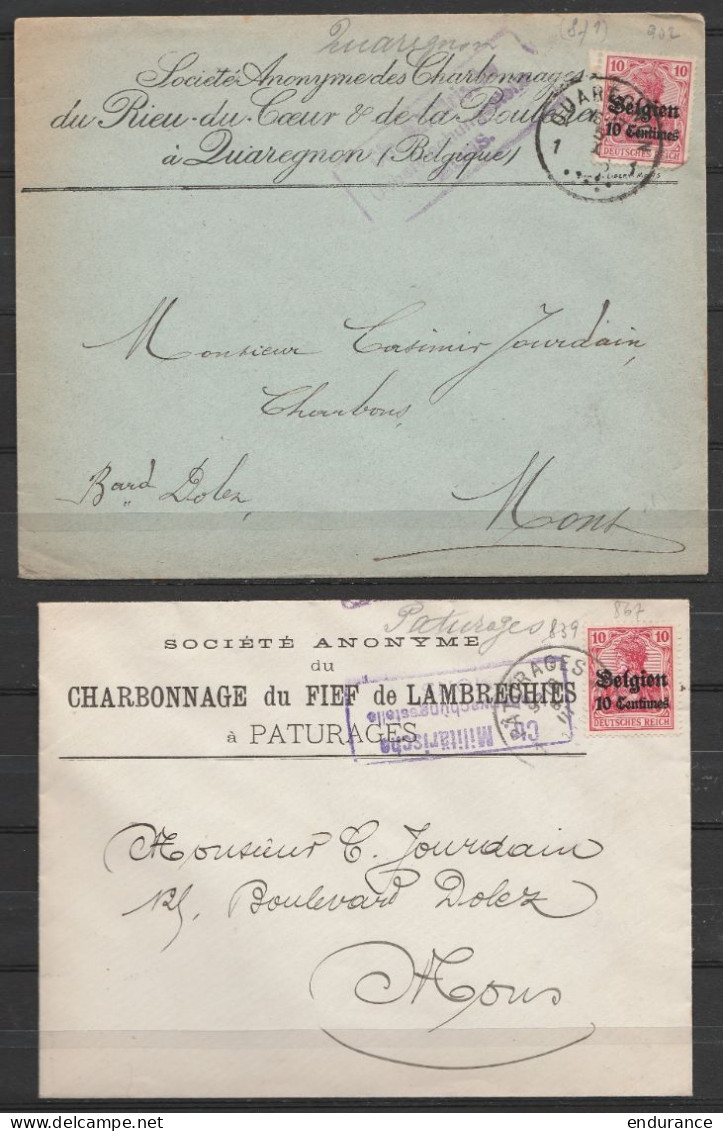 Quaregnon
(8/1) 902
Société Anonyme des Charbonnages
du Rieu-du-Cœur & de la Boule
à Quaregnon (Belgique)
10 10
Belgien
10 Centimes
DEUTSCHES REICH
Monsieur Casimir Jourdain,
Charbons,
Bard Dolez,
Mons
Paturages
839 867
SOCIÉTÉ ANONYME
du
CHARBONNAGE du FIEF de LAMBRECHIES
à PATURAGES
Militärische
PATURAGES
10 10
Belgien
10 Centimes
DEUTSCHES REICH
Monsieur C. Jourdain
Boulevard Dolez
Mons
endurance